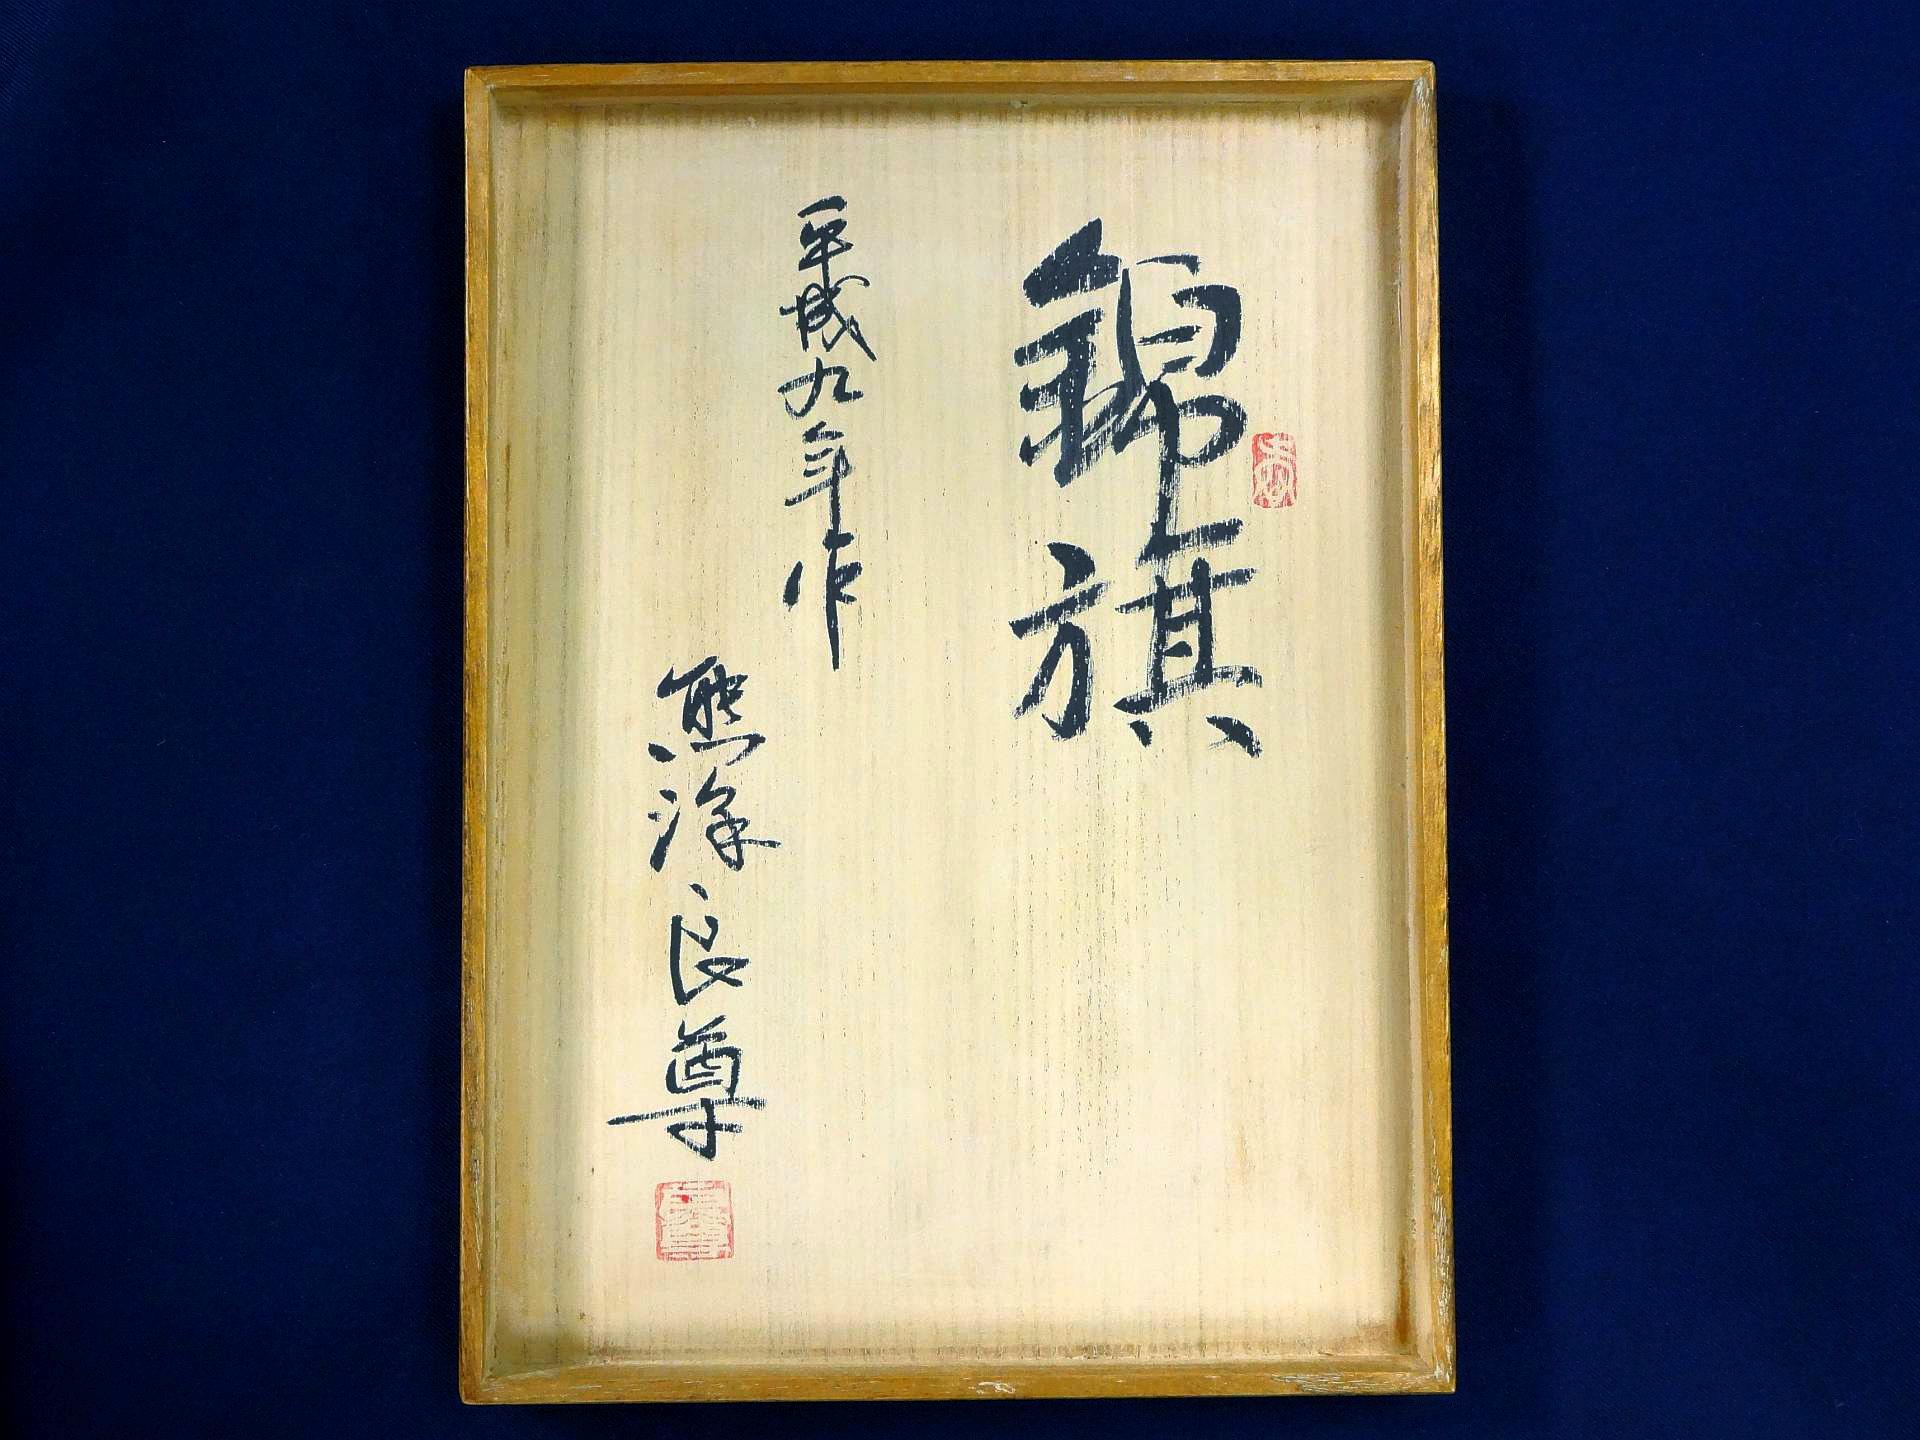 錦旗
平成九年作
熊澤良尊